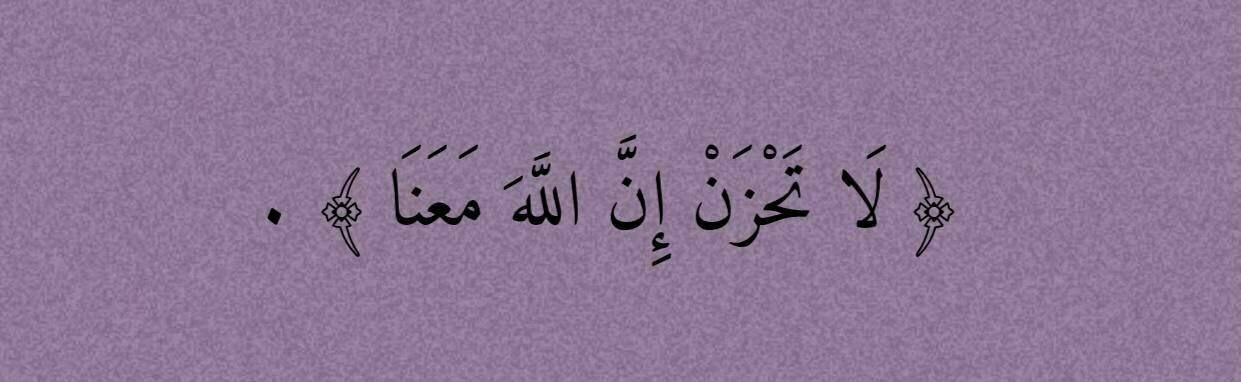 ﴿ لَا تَحْزَنْ إِنَّ اللَّهَ مَعَنَا ﴾ .